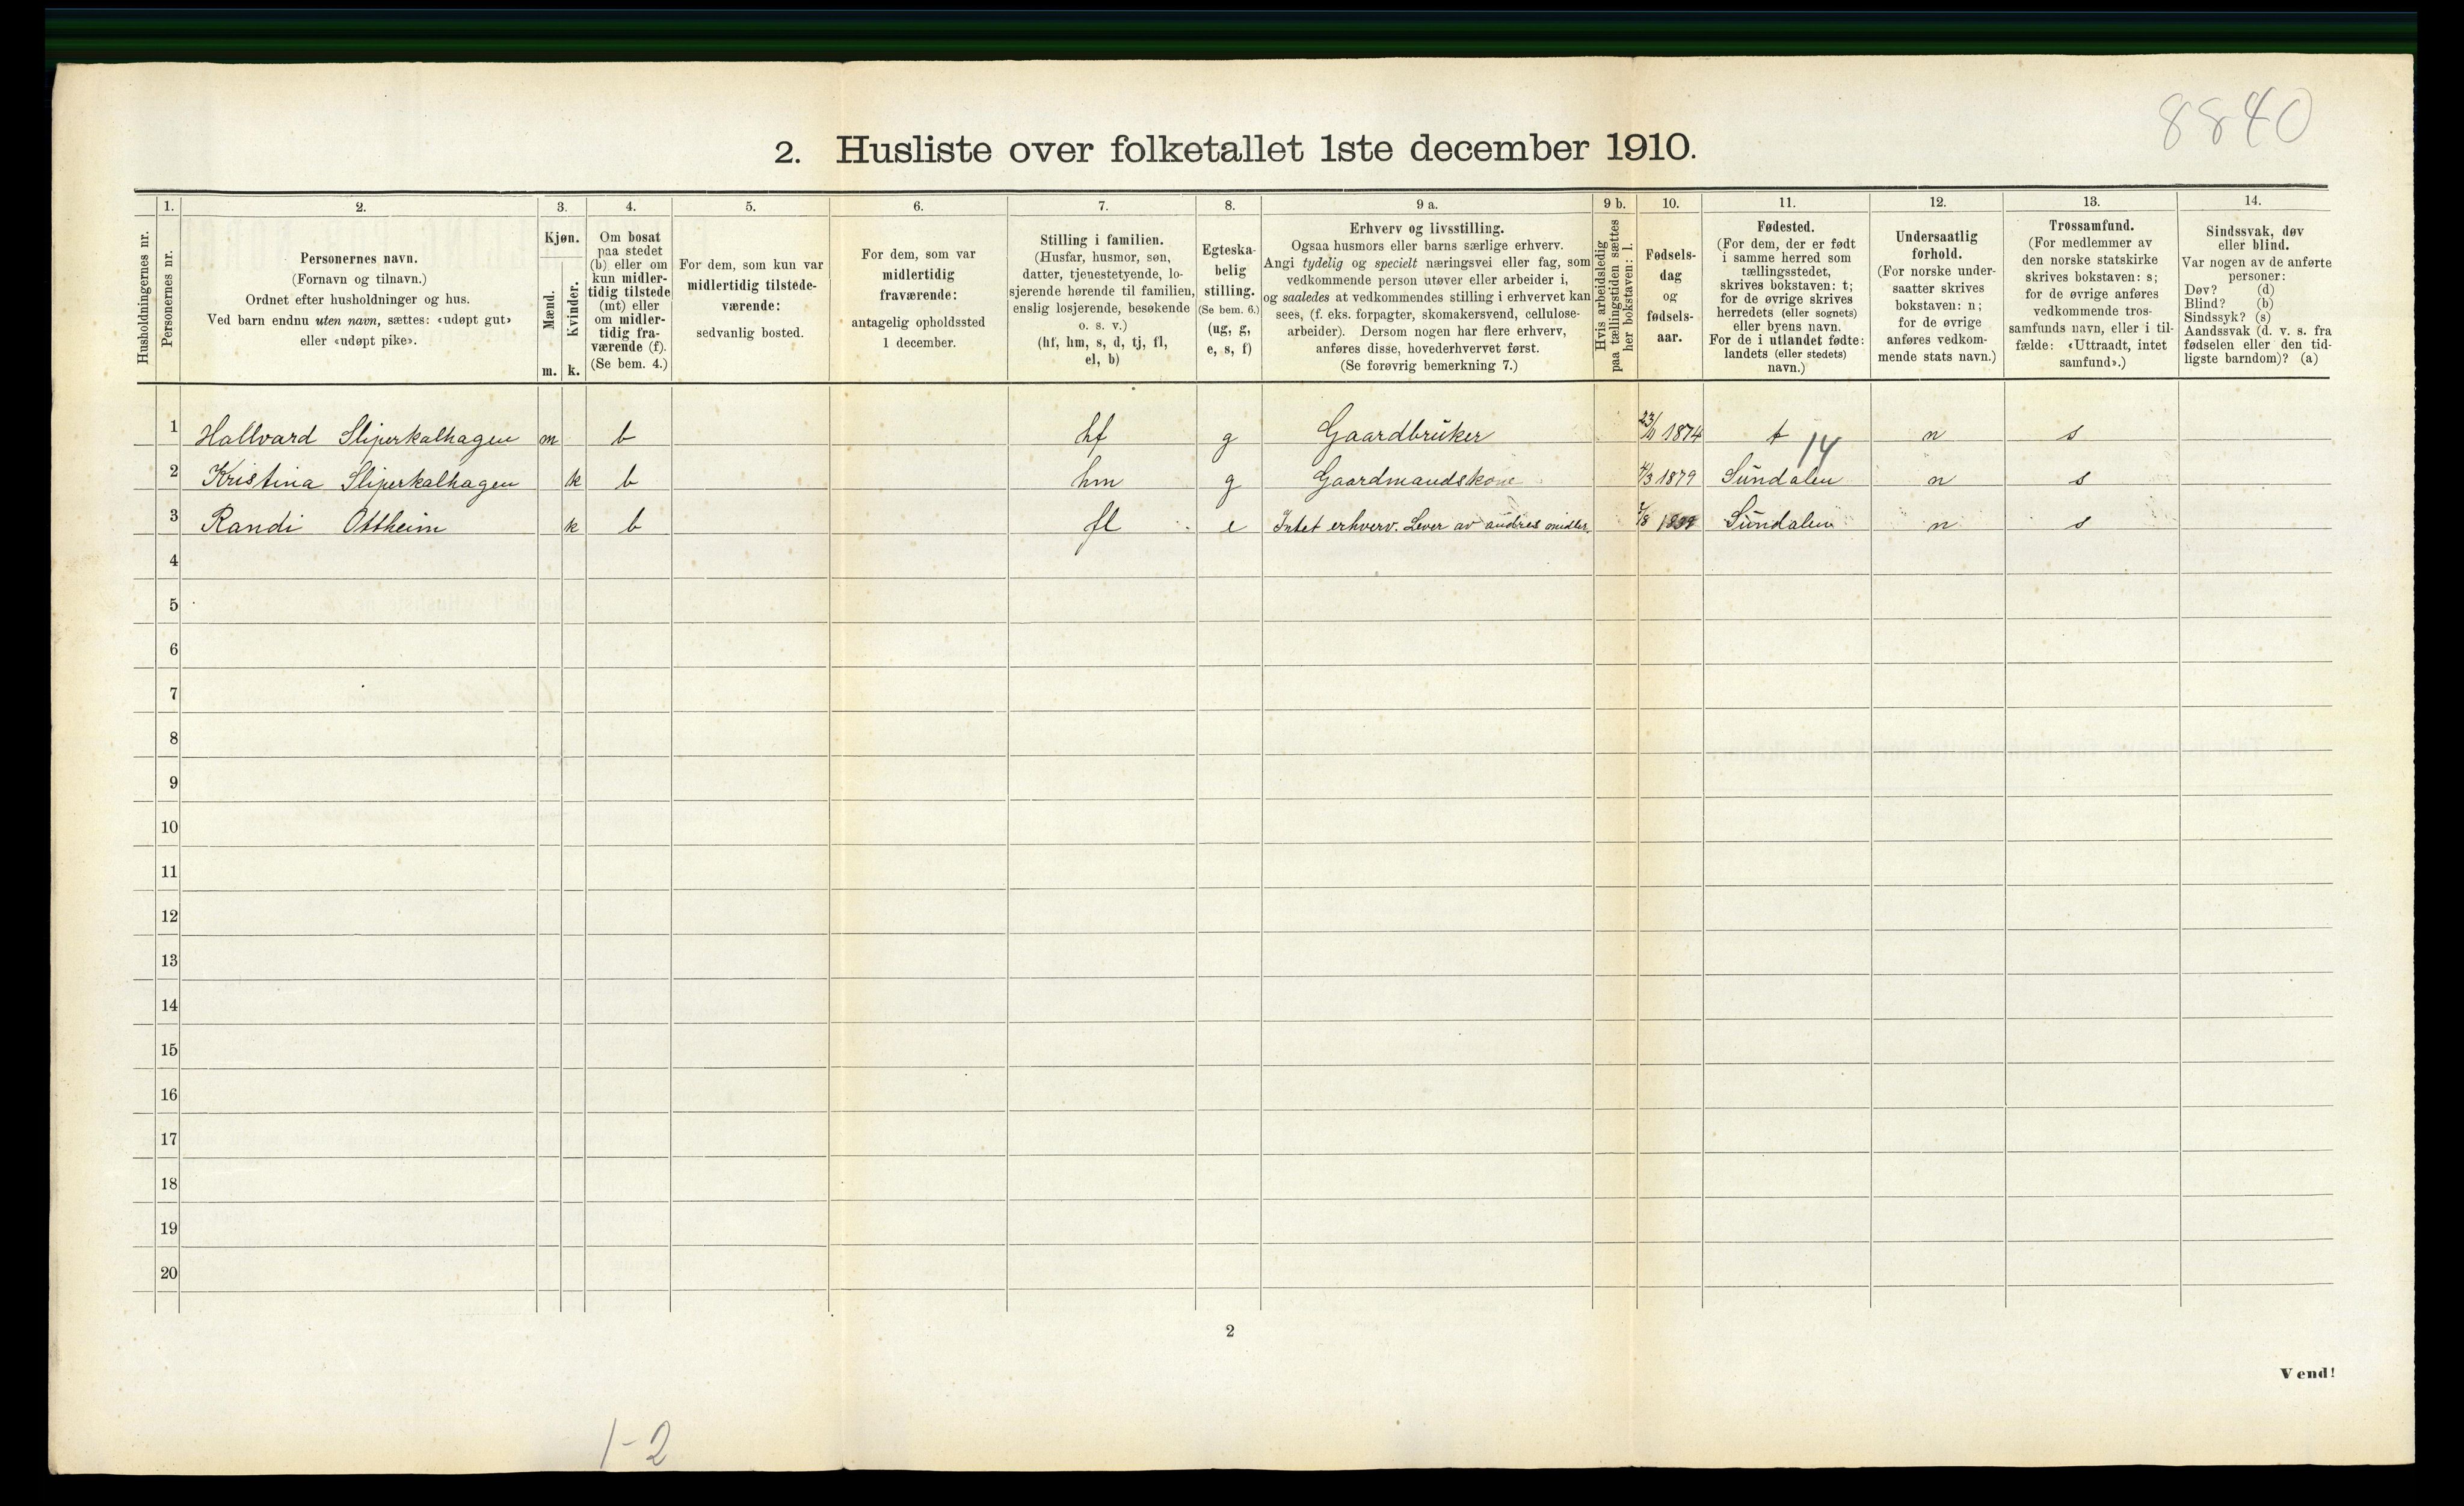 8840
2. Husliste over folketallet 1ste december 1910.
Husholdningernes nr.
1.
Personernes nr.
2.
Personernes navn.
(Fornavn og tilnavn.)
Ordnet efter husholdninger og hus.
Ved barn endnu uten navn, sættes: «udøpt gut»
eller «udøpt pike».
3.
Kjøn.
Mænd.
Kvinder.
m. k.
4.
Om bosat
paa stedet
(b) eller om
kun midler-
tidig tilstede
(mt) eller
om midler-
tidig fra-
værende (f).
(Se bem. 4.)
5.
For dem, som kun var
midlertidig tilstede-
værende:
sedvanlig bosted.
6.
For dem, som var
midlertidig
fraværende:
antagelig opholdssted
1 december.
7.
Stilling i familien.
(Husfar, husmor, søn,
datter, tjenestetyende, lo-
sjerende hørende til familien,
enslig losjerende, besøkende
o. s. v.)
(hf, hm, s, d, tj, fl,
el, b)
8.
Egteska-
belig
stilling.
(Se bem. 6.)
(ug, g,
e, s, f)
9 a.
Erhverv og livsstilling.
Ogsaa husmors eller barns særlige erhverv.
Angi tydelig og specielt næringsvei eller fag, som
vedkommende person utøver eller arbeider i,
og saaledes at vedkommendes stilling i erhvervet kan
sees, (f. eks. forpagter, skomakersvend, cellulose-
arbeider). Dersom nogen har flere erhverv,
anføres disse, hovederhvervet først.
(Se forøvrig bemerkning 7.)
9 b.
Hvis arbeidsledig
paa tællingstiden sættes
her bokstaven: l.
10.
Fødsels-
dag
og
fødsels-
aar.
11.
Fødested.
(For dem, der er født
i samme herred som
tællingsstedet,
skrives bokstaven: t;
for de øvrige skrives
herredets (eller sognets)
eller byens navn.
For de i utlandet fødte:
landets (eller stedets)
navn.)
12.
Undersaatlig
forhold.
(For norske under-
saatter skrives
bokstaven: n;
for de øvrige
anføres vedkom-
mende stats navn.)
13.
Trossamfund.
(For medlemmer av
den norske statskirke
skrives bokstaven: s;
for de øvrige anføres
vedkommende tros-
samfunds navn, eller i til-
fælde: «Uttraadt, intet
samfund».)
14.
Sindssvak, døv
eller blind.
Var nogen av de anførte
personer:
Døv? (d)
Blind? (b)
Sindssyk? (s)
Aandssvak (d. v. s. fra
fødselen eller den tid-
ligste barndom)? (a)
1 Hallvard Sliperkalhagen m b hf g Gaardbruker 1874 t n s
14
2 Kristina Sliperkalhagen k b hm g Gaardmandskone 4/3 1879 Sundalen n s
3 Randi Ottheim k b fl e Intet erhverv. Lever av andres midler. 7/8 Sundalen n s
4
5
6
7
8
9
10
11
12
13
14
15
16
17
18
19
20
2
Vend!
1-2